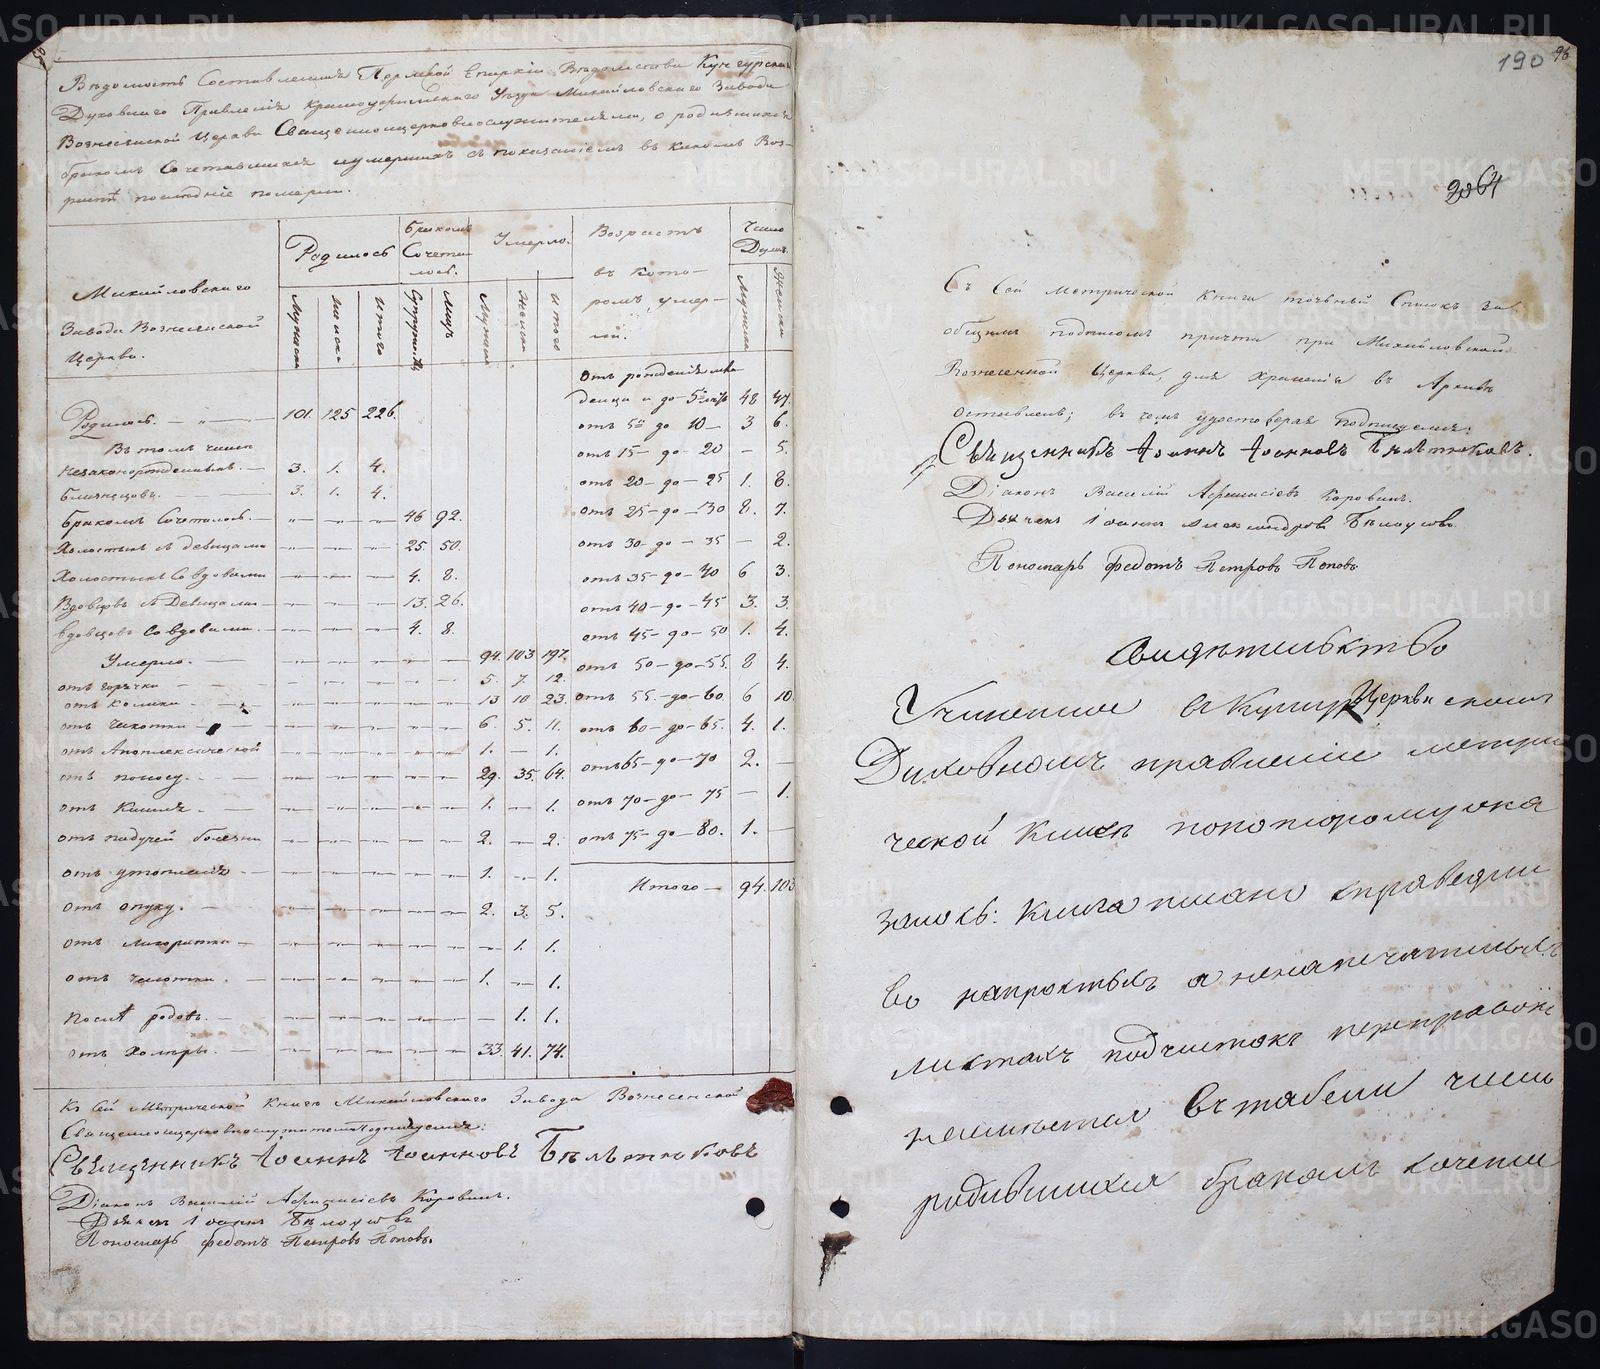 Вѣдомость Составленная Пермской Епархіи Вѣдомства Кунгурскаго
Духовнаго Правленія Красноуфимскаго Уѣзда Михайловскаго Завода
Вознесенской Церкви Священноцерковнослужителями, о родившихся
бракомъ Сочетавшихся и умершихъ съ показаніемъ въ какомъ Воз-
растѣ последніе померли.
Михайловскаго
Завода Вознесенской
Церкви.
Родилось
Мужска
Женска
Итого
Бракомъ
Сочета-
лось.
Супружствъ
Лицъ
Умерло.
Мужска
Женска
Итого
Возрастъ
въ кото-
ромъ умер-
ли.
Число
Душъ.
Мужска
Женска
Родилось. 101. 125 226.
Въ томъ числе
Незаконорожденныхъ. 3. 1. 4.
Близнецовъ. 3. 1. 4.
Бракомъ Сочеталось. 46 92.
Холостыхъ съ девицами 25. 50.
Холостыхъ со вдовами 4. 8.
Вдовцовъ съ Девицами 13. 26.
Вдовцовъ со вдовами. 4. 8.
Умерло. 94. 103 197.
отъ горячки 5. 7. 12.
отъ колики 13 10 23.
отъ чихотки 6. 5. 11.
отъ Апоплексической 1. — 1.
отъ поносу. 29. 35. 64.
отъ Кашля 1. — 1.
отъ падучей болезни 2. — 2.
отъ утопленія 1. — 1.
отъ опуху. 2. 3. 5.
отъ 1. 1.
отъ чахотки. 1. — 1.
После родовъ. — 1. 1.
отъ Холеры. 33. 41. 74.
отъ рожденія мла-
денца и до 5 летъ 48 47.
отъ 5 до 10 3 6.
отъ 15 до 20 — 5.
отъ 20 до 25 1. 8.
отъ 25 до 30 8. 7.
отъ 30 до 35 — 2.
отъ 35 до 40 6 3.
отъ 40 до 45 3. 3.
отъ 45 до 50 1. 4.
отъ 50 до 55. 8 4.
отъ 55 до 60 6 10
отъ 60 до 65. 4. 1.
отъ 65 до 70 2. —
отъ 70 до 75 — 1.
отъ 75 до 80. 1. —
Итого 94. 103
Къ сей Метрической Книгѣ Михайловскаго Завода Вознесенской
Священноцерковнослужители подписуемся:
Священникъ Іоаннъ Іоанновъ Бѣлѣтюковъ
Діаконъ Василій Афанасіевъ Коровинъ.
Дьячекъ Іоаннъ Бѣлоусовъ
Пономарь Федотъ Петровъ Поповъ.
190 96
2064
Съ Сей Метрической Книги точный Списокъ за
общимъ подписомъ причта при Михайловской
Вознесенской Церкви, для храненія въ Архивѣ
оставленъ; въ чемъ удостоверяя подписуемся.
Священникъ Іоаннъ Іоанновъ Бѣлѣтюковъ.
Діаконъ Василій Афанасіевъ Коровинъ.
Дьячекъ Іоаннъ Александровъ Бѣлоусовъ
Пономарь Федотъ Петровъ Поповъ
Свидѣтельство
Учиненное въ Кунгурскомъ
Церкви
Духовномъ правленіи метри
ческой книгѣ по которому ока
залось: Книга писана справедли
во на простыхъ а не на печатныхъ
листахъ подчистокъ переправокъ
неимѣется въ табели число
родившихся бракомъ сочета